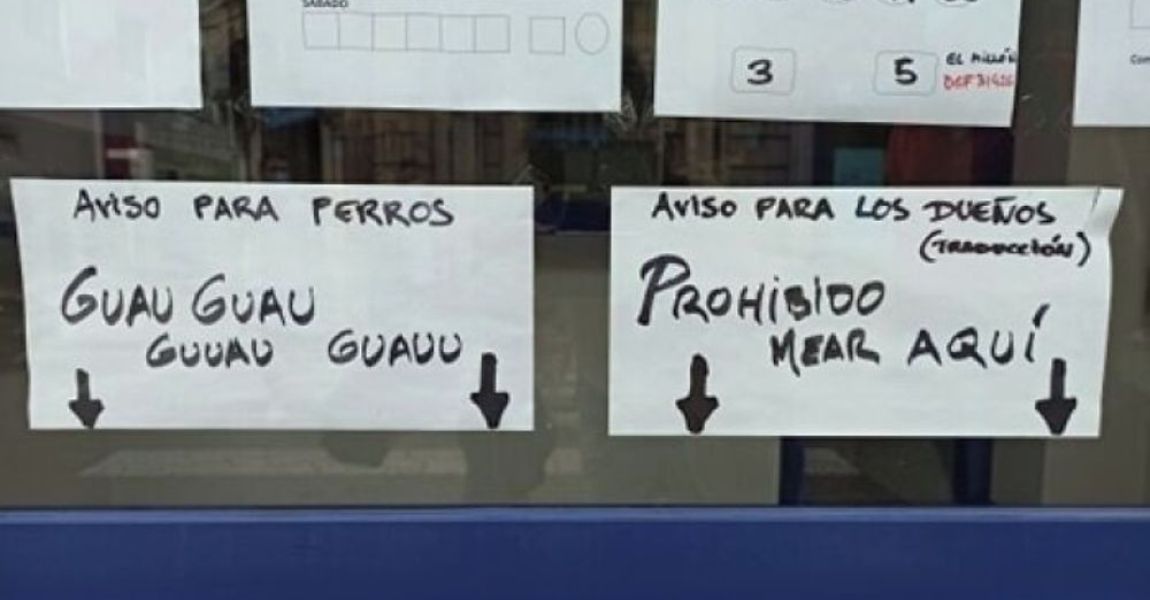 SÁBADO
3 5 EL MILLÓN
AVISO PARA PERROS
GUAU GUAU
GUUAU GUAUU
AVISO PARA LOS DUEÑOS
(TRADUCCIÓN)
PROHIBIDO
MEAR AQUÍ